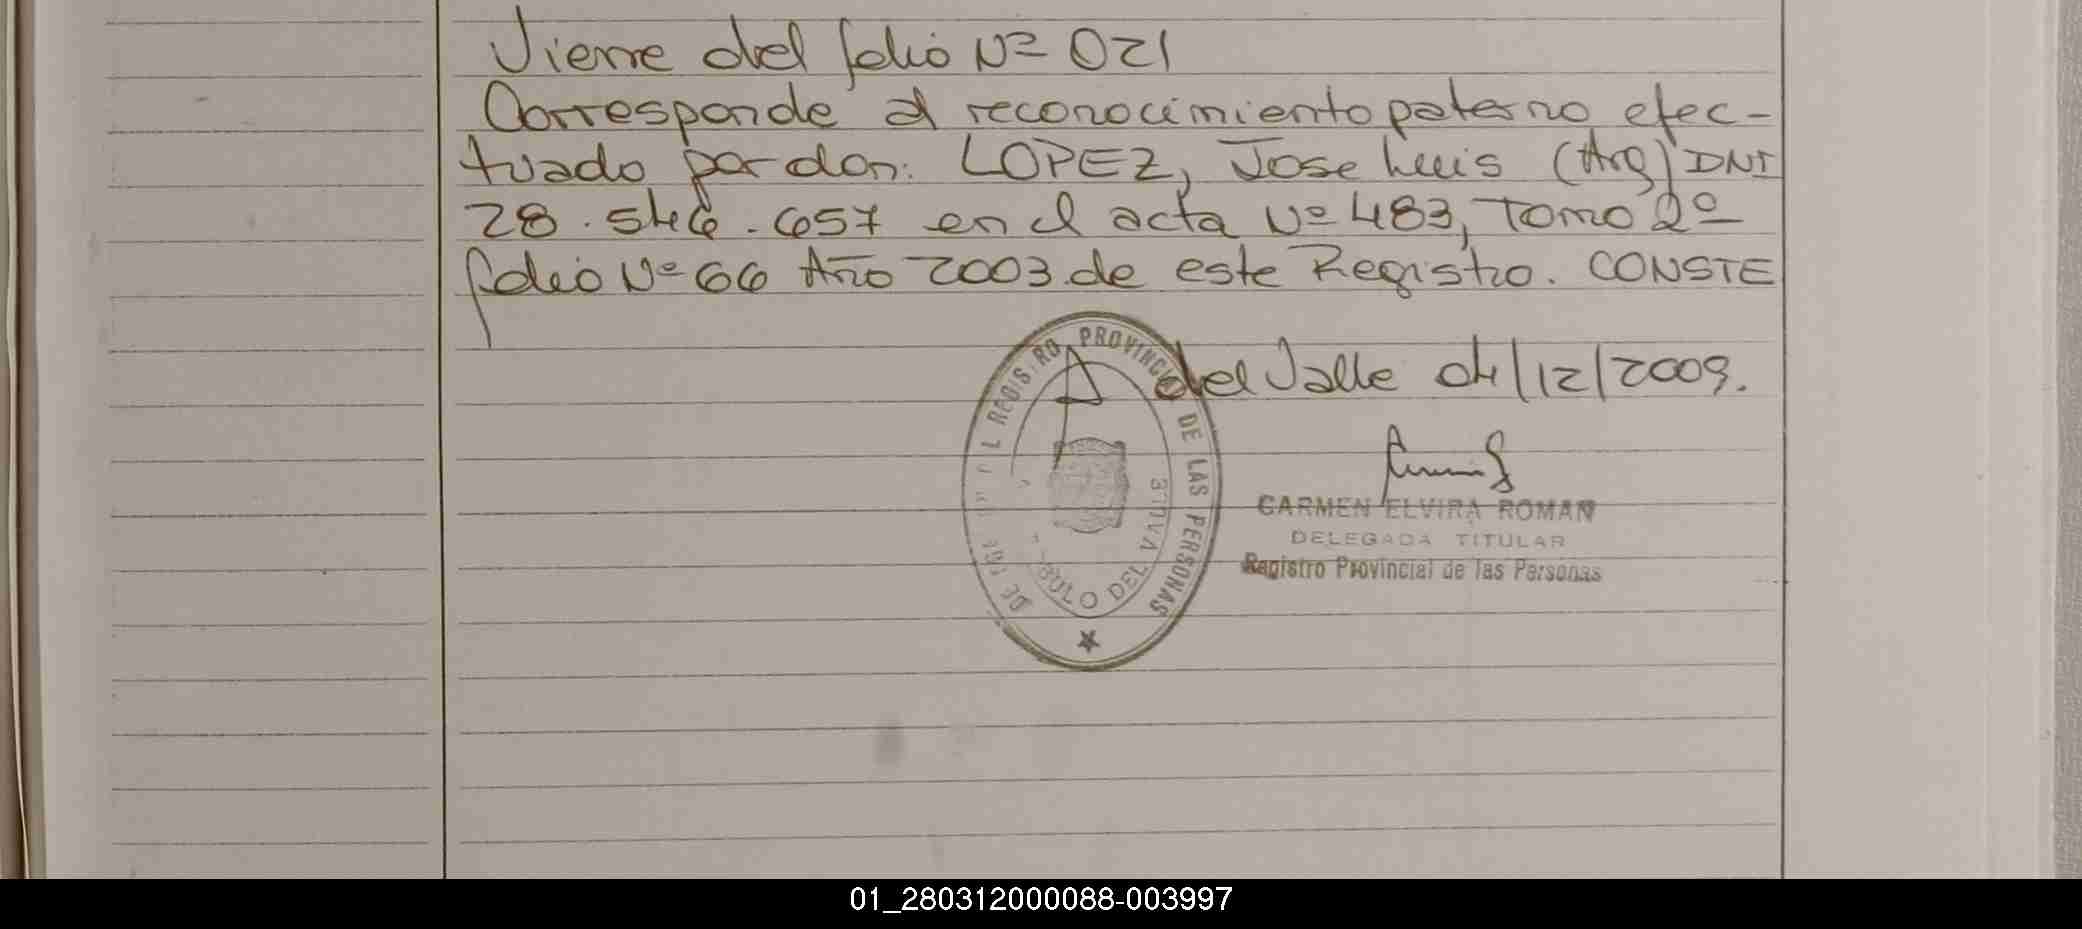 Viene del folio Nº 021
Corresponde al reconocimiento paterno efec-
tuado por don: LOPEZ, Jose Luis (Arg) DNI
28.546.657 en el acta Nº 483, Tomo 2º
folio Nº 66 Año 2003. de este Registro. CONSTE
del Valle 04/12/2009.
REGISTRO PROVINCIAL DE LAS PERSONAS
DEL VALLE
CARMEN ELVIRA ROMAN
DELEGADA TITULAR
Registro Provincial de las Personas
01_280312000088-003997